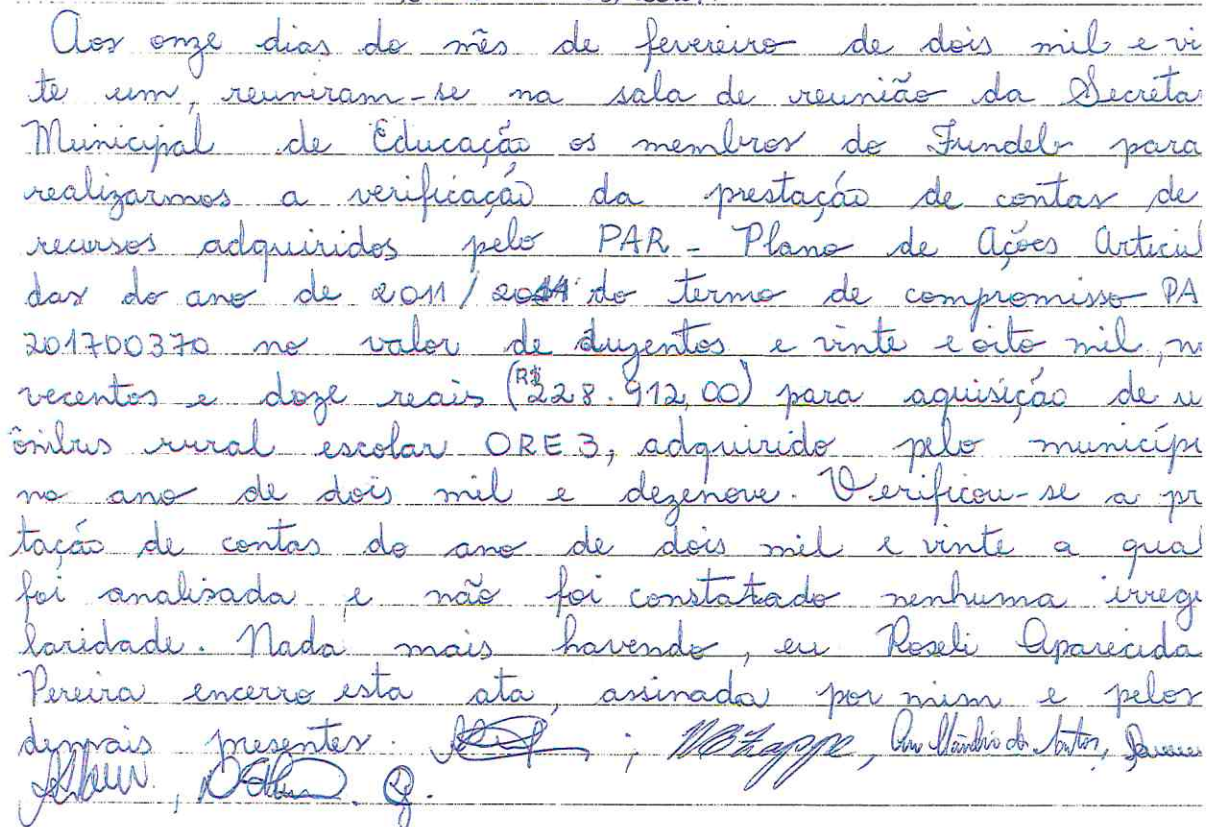 Aos onze dias do mês de fevereiro de dois mil e vi
te um, reuniram-se na sala de reunião da Secreta
Municipal de Educação os membros do Fundeb para
realizarmos a verificação da prestação de contas de
recursos adquiridos pelo PAR - Plano de Ações Articul
das do ano de 2011/2014 do termo de compromisso PA
201700370 no valor de duzentos e vinte e oito mil, n
vecentos e doze reais (R$ 228.912,00) para aquisição de u
ônibus rural escolar ORE 3, adquirido pelo municípi
no ano de dois mil e dezenove. Verificou-se a pr
tação de contas do ano de dois mil e vinte a qua
foi analisada e não foi constatado nenhuma irregu
laridade. Nada mais havendo, eu Roseli Aparecida
Pereira encerro esta ata, assinada por mim e pelos
demais presentes.